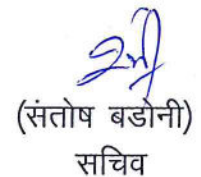 (संतोष बडोनी)
सचिव